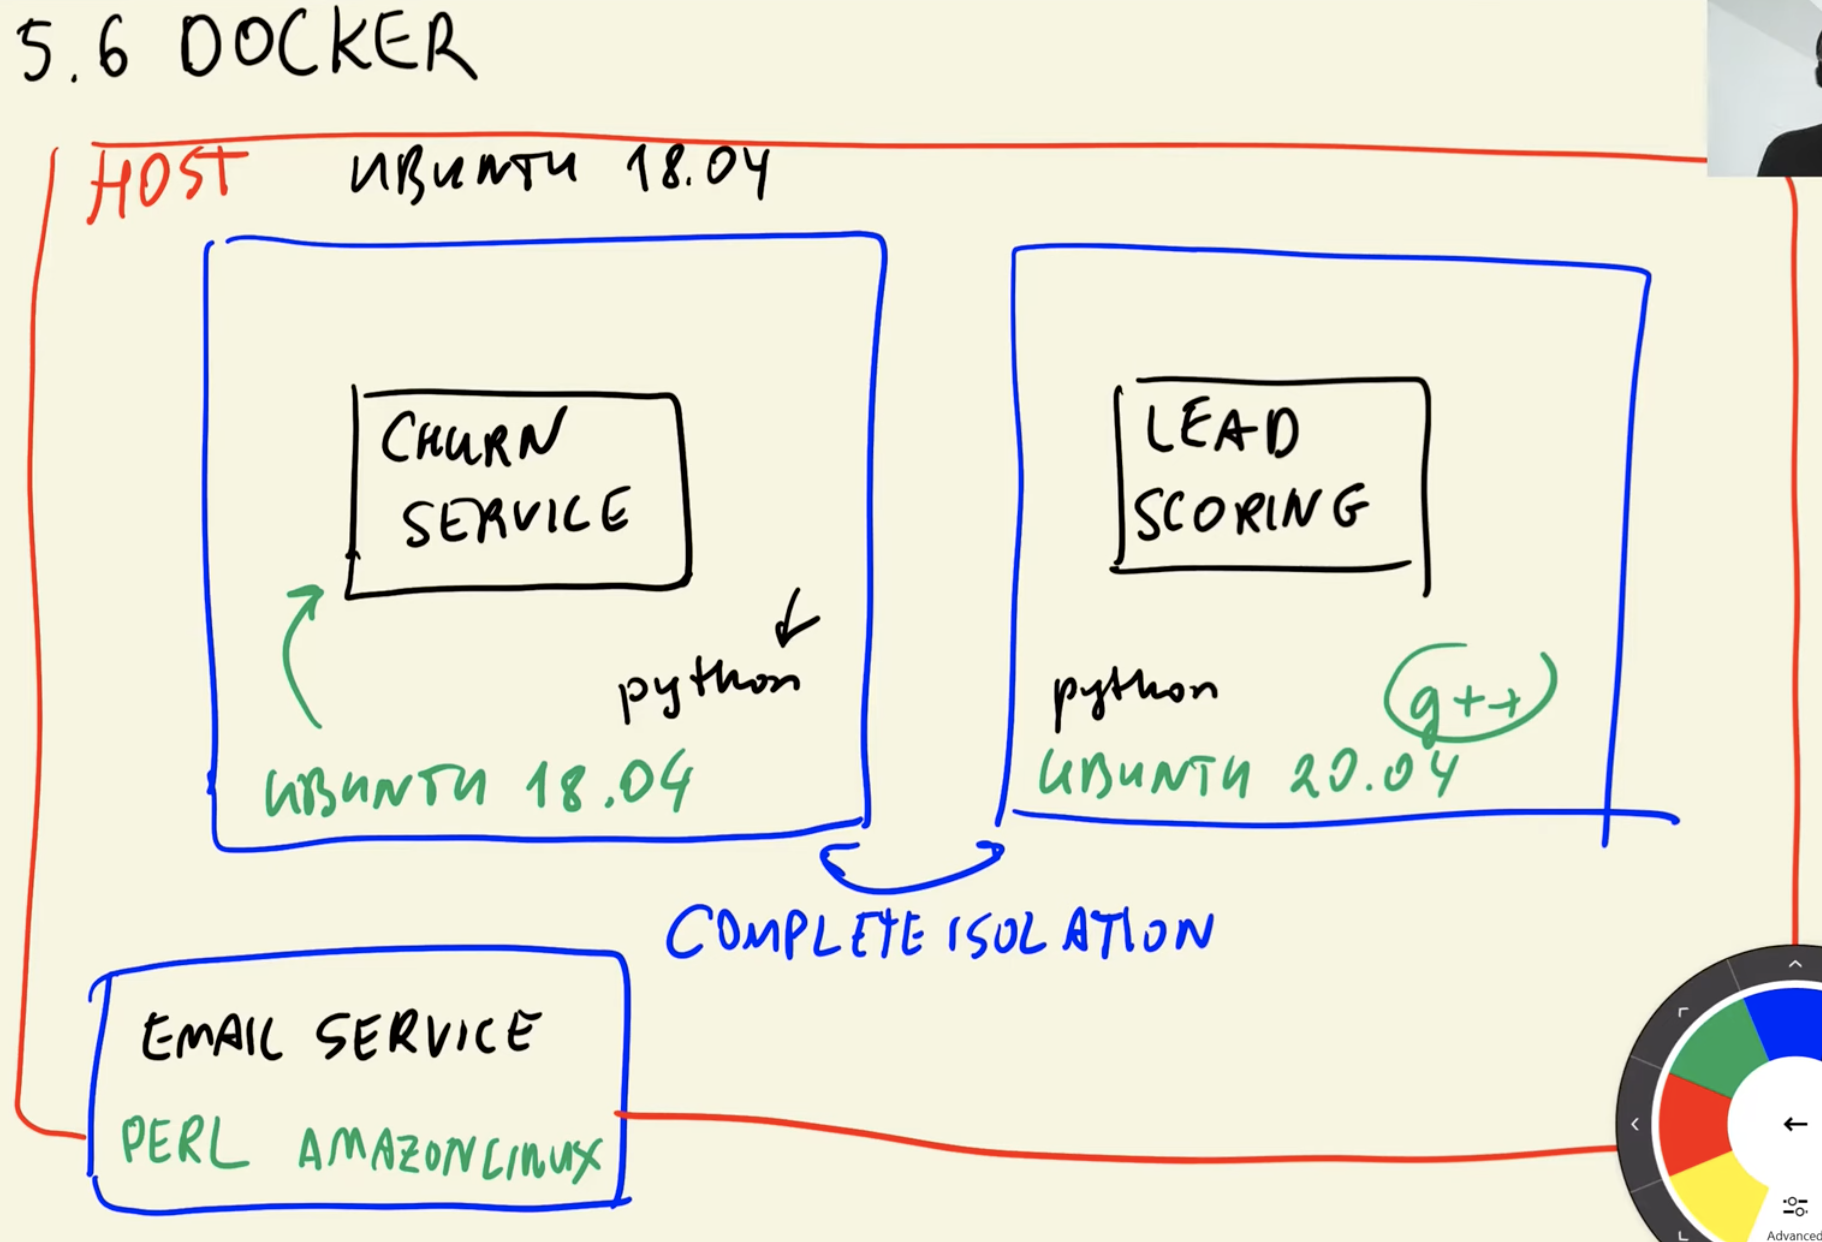 5.6 DOCKER
HOST UBUNTU 18.04
CHURN
SERVICE
python
UBUNTU 18.04
LEAD
SCORING
python g++
UBUNTU 20.04
COMPLETE ISOLATION
EMAIL SERVICE
PERL AMAZON LINUX
Advanced